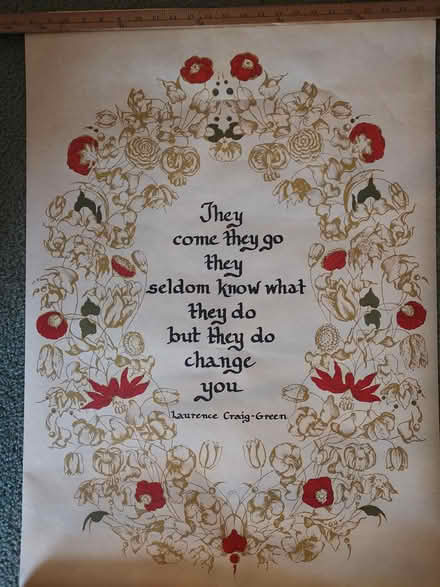 They
come they go
they
seldom know what
they do
but they do
change
you
Laurence Craig-Green